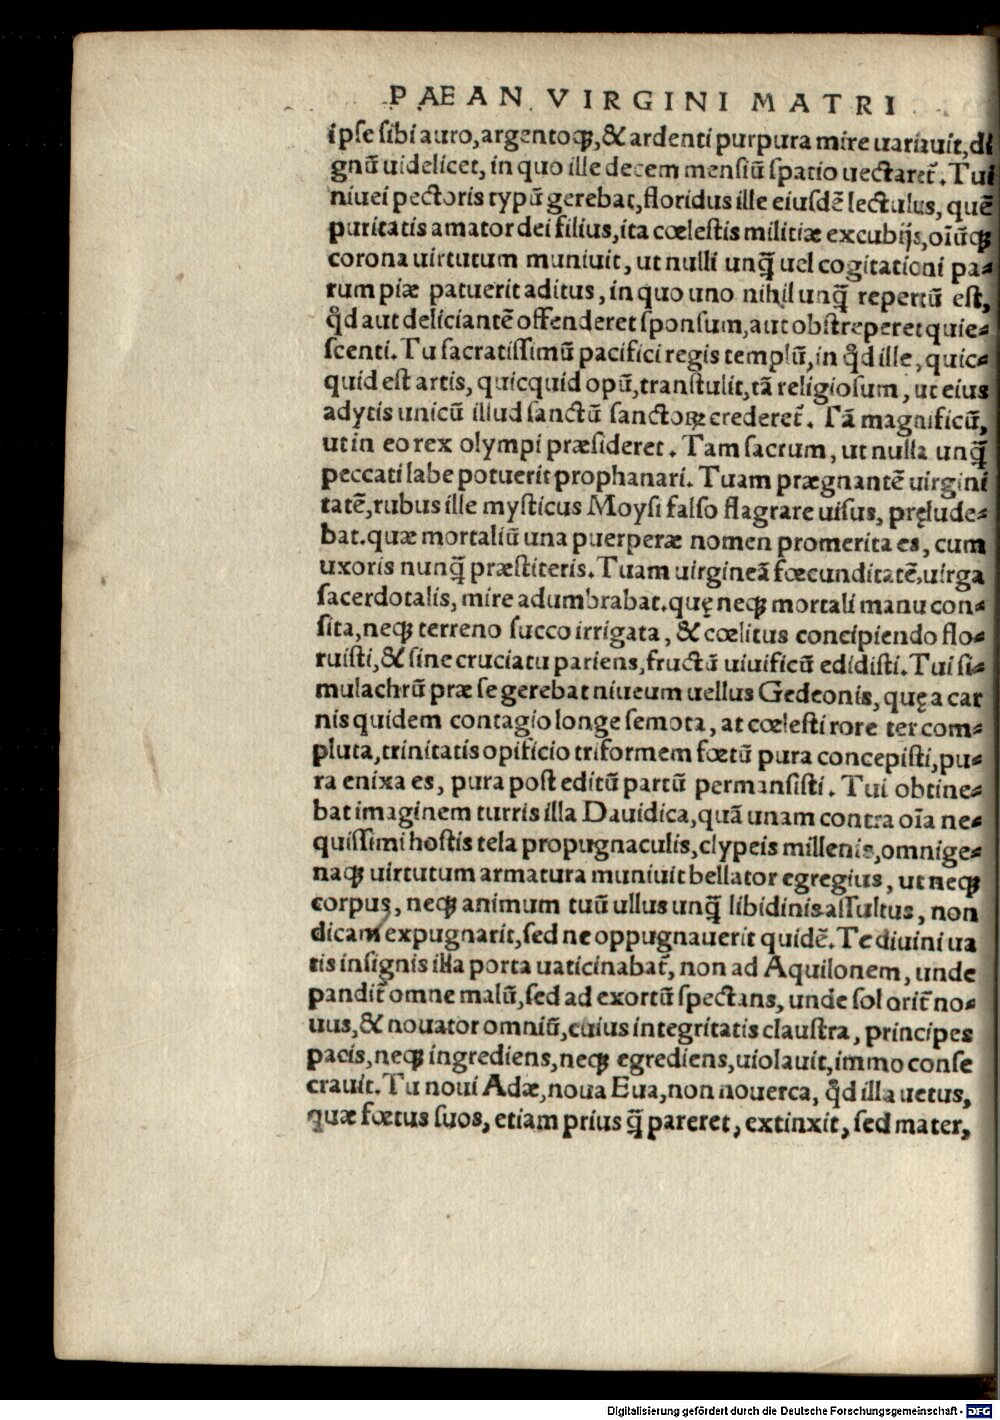 PAEAN VIRGINI MATRI
ipse sibi auro, argentoqȝ, & ardenti purpura mire uariauit, di
gnũ uidelicet, in quo ille decem mensiũ spatio uectaret᷑. Tui
niuei pectoris typũ gerebat, floridus ille eiusdẽ lectulus, quẽ
puritatis amator dei filius, ita cœlestis militiæ excubijs, oĩũqȝ
corona uirtutum muniuit, ut nulli unq̃ uel cogitationi pa-
rum piæ patuerit aditus, in quo uno nihil unq̃ repertũ est,
qd̉ aut deliciantẽ offenderet sponsum, aut obstreperet quie-
scenti. Tu sacratissimũ pacifici regis templũ, in qd̉ ille, quic-
quid est artis, quicquid opũ, transtulit, tã religiosum, ut eius
adytis unicũ illud sanctũ sanctoꝝ crederet᷑. Tã magnificũ,
ut in eo rex olympi præsideret. Tam sacrum, ut nulla unq̃
peccati labe potuerit prophanari. Tuam prægnantẽ uirgini
tatẽ, rubus ille mysticus Moysi falso flagrare uisus, pręlude-
bat. quæ mortaliũ una puerperæ nomen promerita es, cum
uxoris nunq̃ præstiteris. Tuam uirgineã fœcunditatẽ, uirga
sacerdotalis, mire adumbrabat. quę neqȝ mortali manu con-
sita, neqȝ terreno succo irrigata, & cœlitus concipiendo flo-
ruisti, & sine cruciatu pariens, fructũ uiuificũ edidisti. Tui si-
mulachrũ præ se gerebat niueum uellus Gedeonis, quę a car
nis quidem contagio longe semota, at cœlesti rore ter com-
pluta, trinitatis opificio triformem fœtũ pura concepisti, pu-
ra enixa es, pura post editũ partũ permansisti. Tui obtine-
bat imaginem turris illa Dauidica, quã unam contra oĩa ne-
quissimi hostis tela propugnaculis, clypeis millenis, omnige-
naqȝ uirtutum armatura muniuit bellator egregius, ut neqȝ
corpus, neqȝ animum tuũ ullus unq̃ libidinis assultus, non
dicam expugnarit, sed ne oppugnauerit quidẽ. Te diuini ua
tis insignis illa porta uaticinabat᷑, non ad Aquilonem, unde
pandit᷑ omne malũ, sed ad exortũ spectans, unde sol orit᷑ no-
uus, & nouator omniũ, cuius integritatis claustra, principes
pacis, neqȝ ingrediens, neqȝ egrediens, uiolauit, immo conse
crauit. Tu noui Adæ, noua Eua, non nouerca, qd̉ illa uetus,
quæ fœtus suos, etiam prius q̃ pareret, extinxit, sed mater,
Digitalisierung gefördert durch die Deutsche Forschungsgemeinschaft - DFG